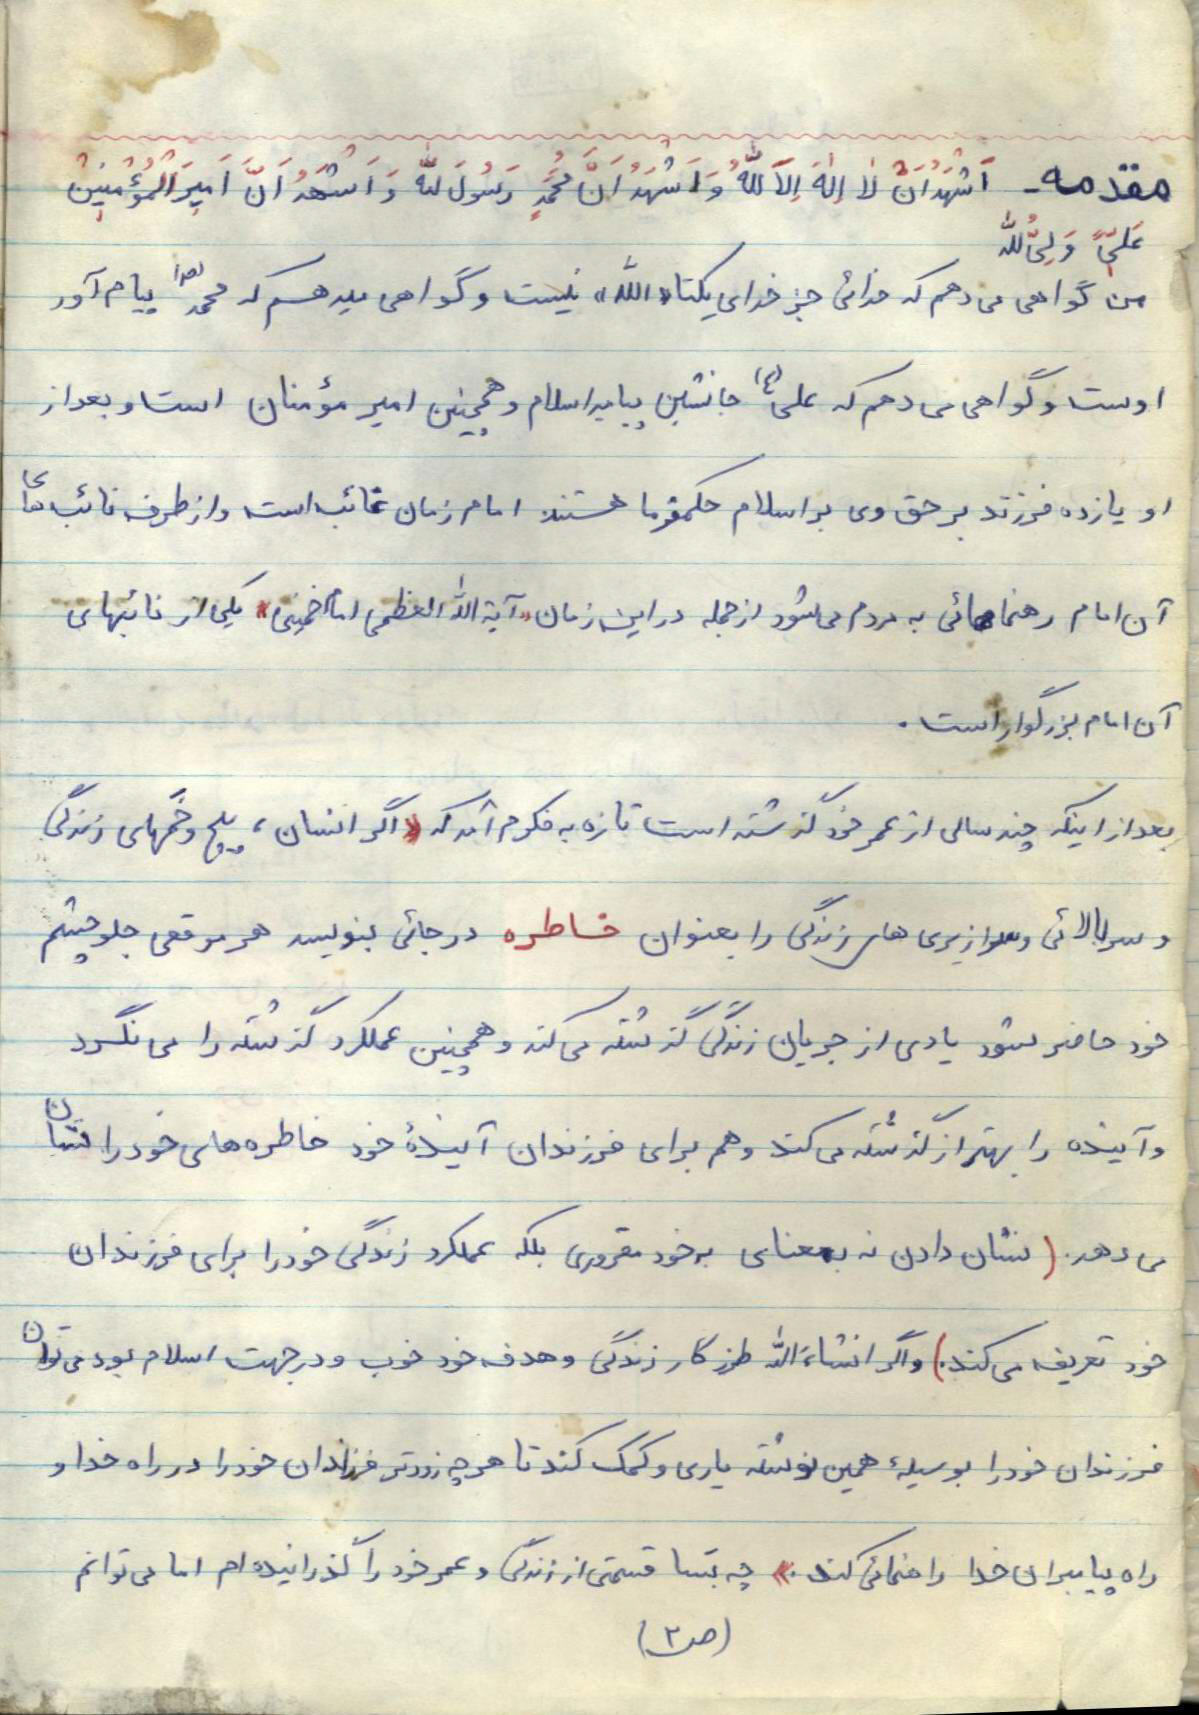 مقدمه - اَشْهَدُ اَنْ لا اِلهَ اِلاَ اللهُ وَ اَشْهَدُ اَنَّ مُحَمَّدٍ رَسُولَ لله وَ اَشْهَدُ اَنَّ اَمیِرَ الْمُؤْمِنینْ
عَلیً وَلِیُ لله
من گواهی می دهم که خدائی جز خدای یکتا «الله» نیست و گواهی میدهم که محمد (ص) پیام آور
اوست و گواهی می دهم که علی (ع) جانشین پیامبر اسلام و همچنین امیر مؤمنان است و بعد از
او یازده فرزند بر حق وی بر اسلام حکمفرما هستند امام زمان غائب است و از طرف نائب های
آن امام رهنمائی به مردم می شود از جمله در این زمان «آیة الله العظمی امام خمینی» یکی از نائبهای
آن امام بزرگوار است .
بعد از اینکه چند سالی از عمر خود گذشته است تازه به فکرم آمد که «اگر انسان ، پیچ و خمهای زندگی
و سربالائی و سرازیری های زندگی را بعنوان خاطره در جائی بنویسد هر موقعی جلو چشم
خود حاضر شود یادی از جریان زندگی گذشته می کند و همچنین عملکرد گذشته را می نگرد
و آینده را بهتر از گذشته می کند و هم برای فرزندان آیندهٔ خود خاطره های خود را نشان
می دهد . (نشان دادن نه بمعنای به خود مغروری بلکه عملکرد زندگی خود را برای فرزندان
خود تعریف می کند.) و اگر انشاءالله طرز کار زندگی و هدف خود خوب و در جهت اسلام بود می توان
فرزندان خود را بوسیلهٔ همین نوشته یاری و کمک کند تا هر چه زودتر فرزندان خود را در راه خدا و
راه پیامبران خدا راهنمائی کند .» چه بسا قسمتی از زندگی و عمر خود را گذرانیده ام اما می توانم
(ص ۲)